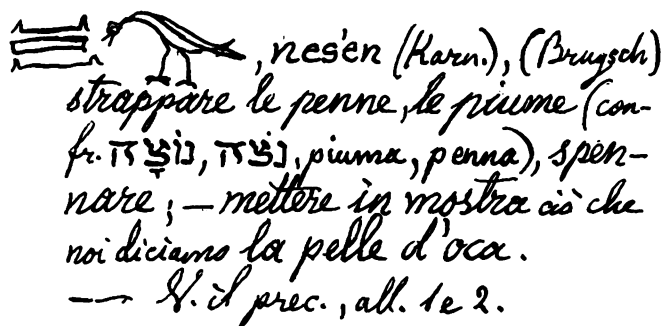 , nes'en (Karn.), (Brugsch)
strappare le penne, le piume (con-
fr. נוֹצָה, נֹצָה, piuma, penna), spen-
nare; — mettere in mostra ciò che
noi diciamo la pelle d'oca.
— V. il prec., all. 1 e 2.